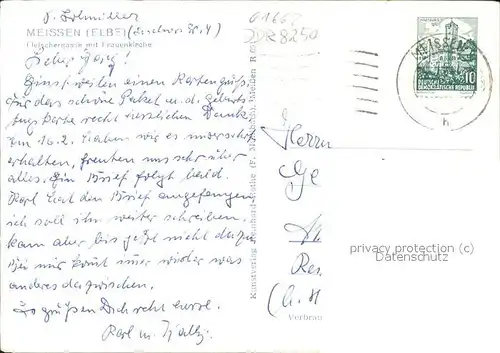 MEISSEN (ELBE)
Fleischergasse mit Frauenkirche
01662
DDR 8250
Einstweilen einen Kartengruß,
für das schöne Paket u. d. Geburts-
tagskarte recht herzlichen Dank.
Am 16.2. haben wir es unversehrt
erhalten, freuten uns sehr über
alles. Ein Brief folgt bald.
Karl hat den Brief angefangen,
ich soll ihn weiter schreiben,
kam aber bis jetzt nicht dazu,
Bei mir kommt immer wieder was
anderes dazwischen.
So grüßen Dich recht
Karl u.
Kunstverlag
MEISSEN
10
DEUTSCHE DEMOKRATISCHE REPUBLIK
h
Herrn
Ge
privacy protection (c)
Datenschutz
Verbrau